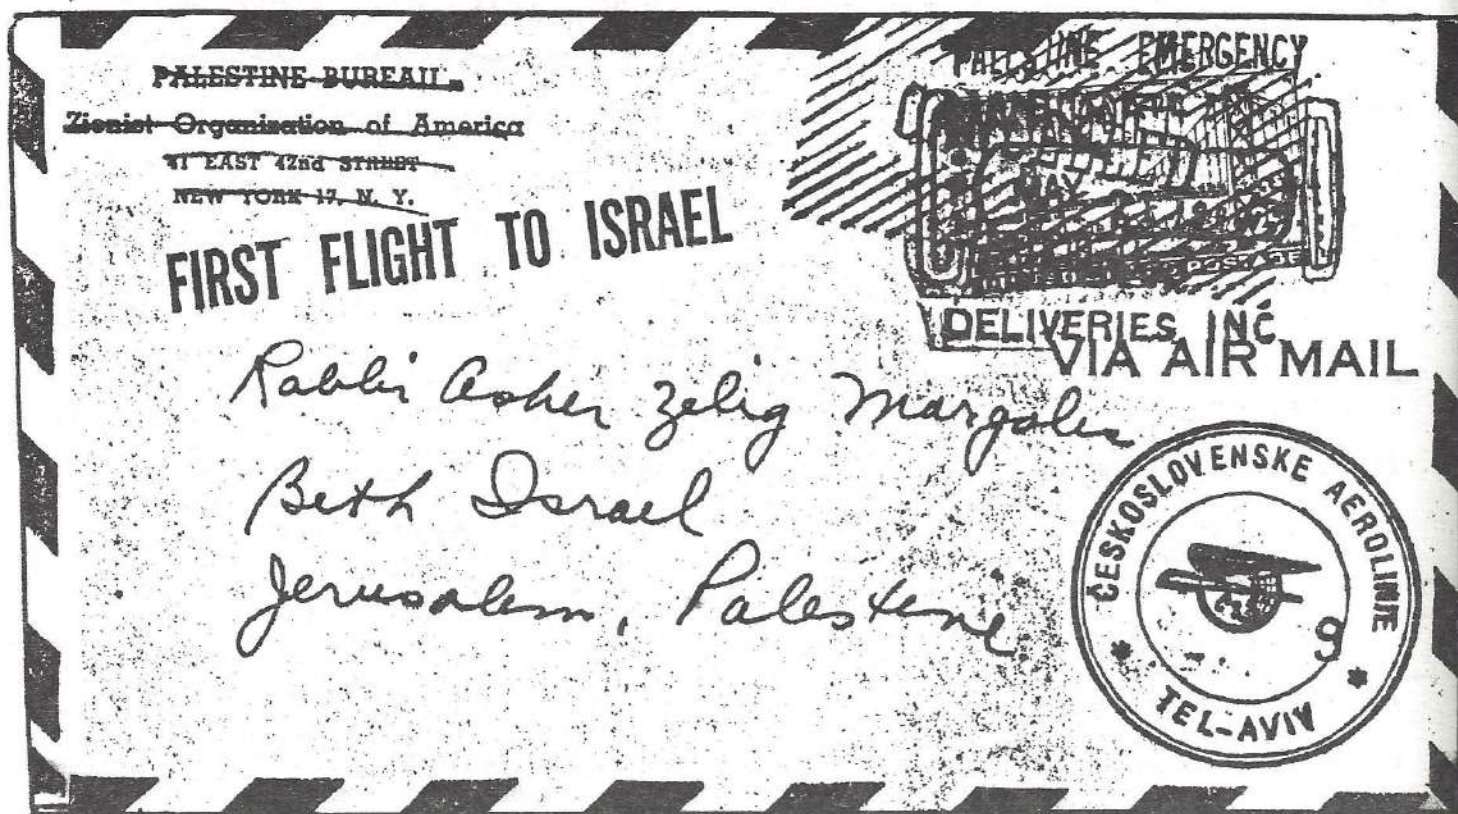 PALESTINE BUREAU
Zionist Organization of America
41 EAST 42nd STREET
NEW YORK 17, N. Y.
FIRST FLIGHT TO ISRAEL
PALESTINE EMERGENCY
MAY
POSTAGE
DELIVERIES INC
VIA AIR MAIL
Rabbi Asher Zelig Margoles
Beth Israel
Jerusalem, Palestine
ČESKOSLOVENSKE AEROLINIE
9
* TEL-AVIV *